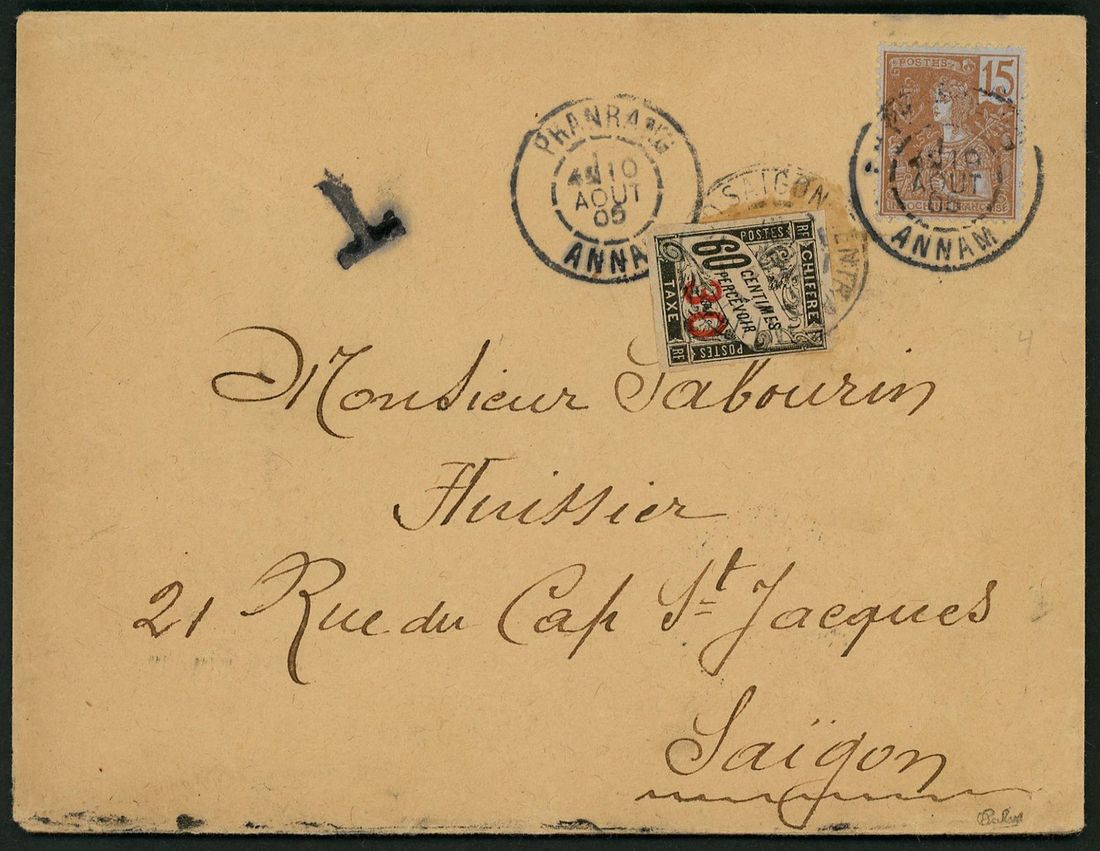 POSTES 15
INDOCHINE FRANÇAISE
PHANRANG
10
AOUT
05
ANNAM
10
AOUT
05
ANNAM
SAIGON CENTRAL
T
CHIFFRE
TAXE
POSTES
POSTES
RF
RF
RF
60
CENTIMES
PERCEVOIR
30
Monsieur Sabourin
Huissier
21 Rue du Cap St Jacques
Saïgon
4